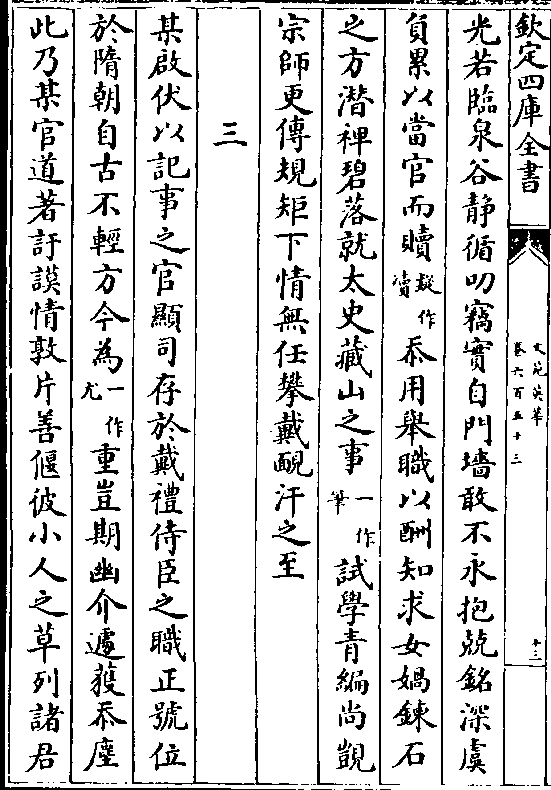 欽定四庫全書
文苑英華
卷六百五十三
十三
光若臨泉谷静循叨竊實自門墻敢不永抱兢銘深虞
負累以當官而贖疑作瀆忝用舉職以酬知求女媧鍊石
之方潛裨碧落就太史藏山之事一作筆試學青編尚覬
宗師更傳規矩下情無任攀戴靦汗之至
三
某啟伏以記事之官顯司存於戴禮侍臣之職正號位
於隋朝自古不輕方今為一作尤重豈期幽介遽獲忝塵
此乃某官道著訏謨情敦片善偃彼小人之草列諸君